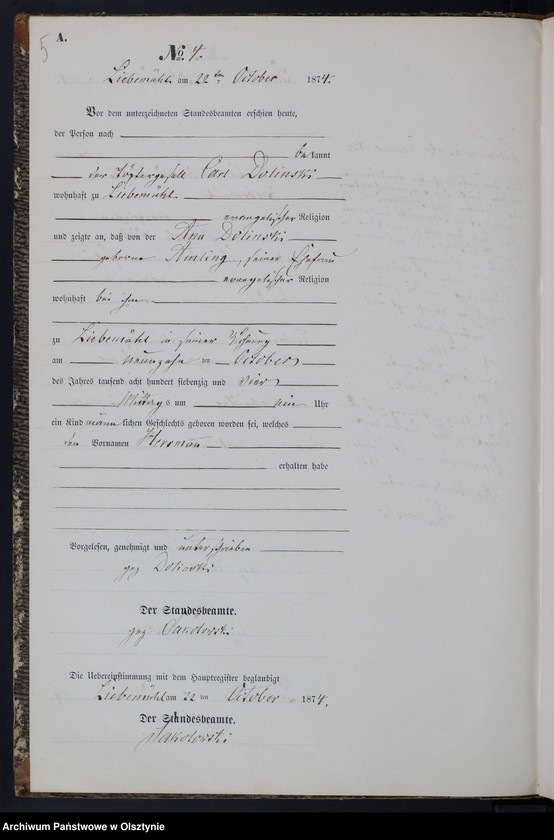 5
A.
No. 4.
Liebemühl am 22ten October 1874.
Vor dem unterzeichneten Standesbeamten erschien heute,
der Person nach
bekannt
der Töpfergesell Carl Dolinski
wohnhaft zu Liebemühl
evangelischer Religion
und zeigte an, daß von der Ana Dolinski
geborne Amling, seiner Ehefrau
evangelischer Religion
wohnhaft bei ihm
zu Liebemühl in seiner Wohnung
am neunzehn ten October
des Jahres tausend acht hundert siebenzig und vier
Mittags um ein Uhr
ein Kind männlichen Geschlechts geboren worden sei, welches
den Vornamen Herrman
erhalten habe
Vorgelesen, genehmigt und unterschrieben
gez Dolinski
Der Standesbeamte.
gez
Die Uebereinstimmung mit dem Hauptregister beglaubigt
Liebemühl am 22 ten October 1874.
Der Standesbeamte.
Archiwum Państwowe w Olsztynie